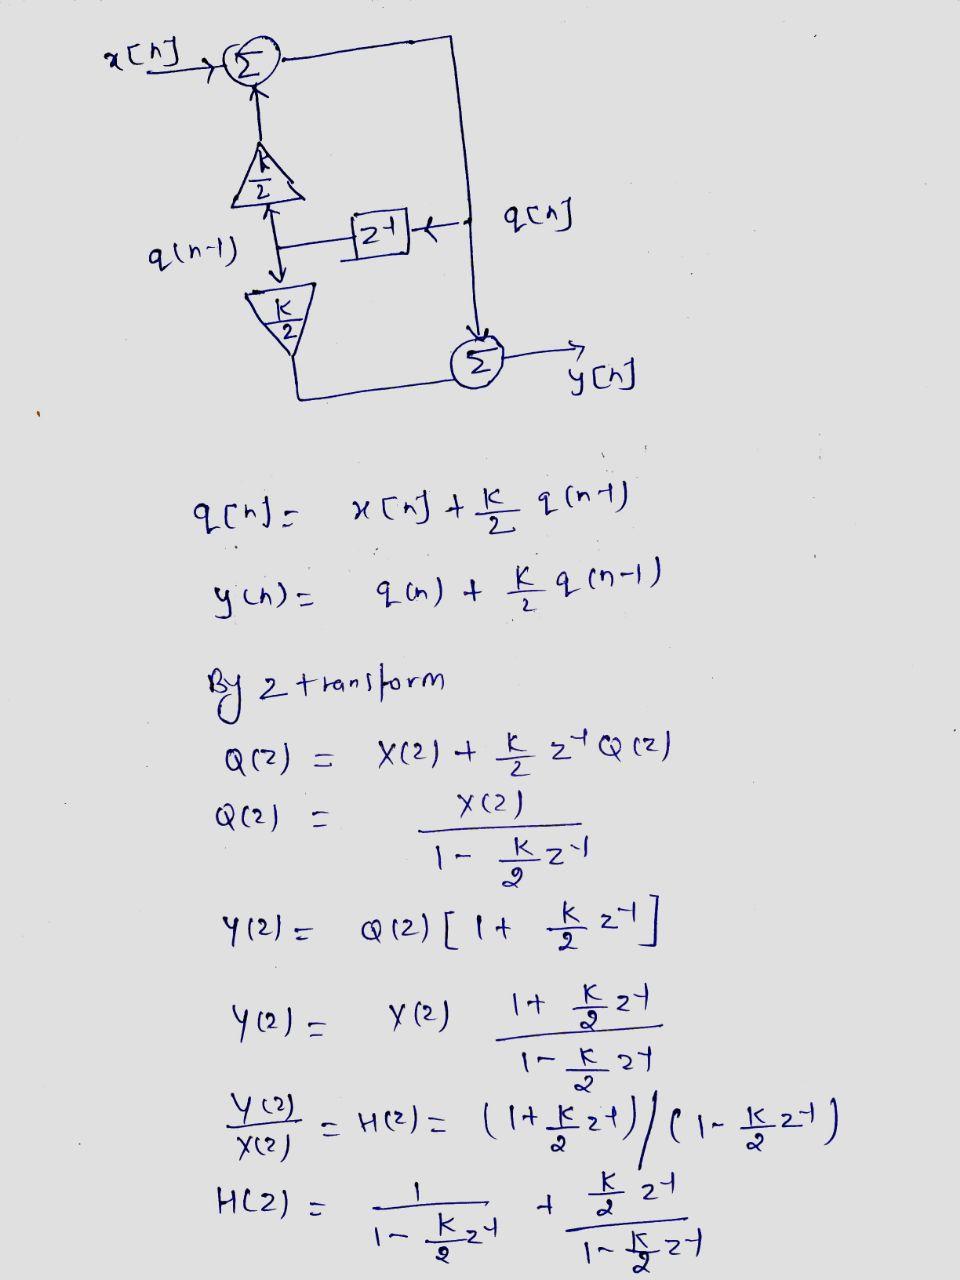 x[n]
Σ
K/2
q(n-1)
z⁻¹
q[n]
K/2
Σ
y[n]
q[n] = x[n] + K/2 q(n-1)
y(n) = q(n) + K/2 q(n-1)
By z transform
Q(z) = X(z) + K/2 z⁻¹ Q(z)
Q(z) = X(z) / 1 - K/2 z⁻¹
Y(z) = Q(z) [ 1 + K/2 z⁻¹ ]
Y(z) = X(z) 1 + K/2 z⁻¹ / 1 - K/2 z⁻¹
Y(z)/X(z) = H(z) = (1 + K/2 z⁻¹) / (1 - K/2 z⁻¹)
H(z) = 1 / 1 - K/2 z⁻¹ + K/2 z⁻¹ / 1 - K/2 z⁻¹